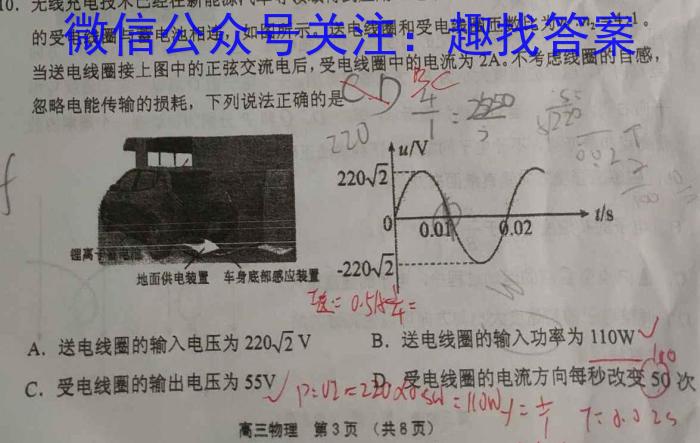 10. 无线充电技术已经在新能源汽车等领域得到
的受电线圈与蓄电池相连，如图所示。送电线圈和受电线圈的匝数比为 : n₂=4:1。
微信公众号关注：趣找答案
当送电线圈接上图中的正弦交流电后，受电线圈中的电流为 2A。不考虑线圈的自感，
忽略电能传输的损耗，下列说法正确的是 CD BC
4/1 =
220
u/V
220√2
0
0.01
0.02
t/s
-220√2
锂离子蓄电池
地面供电装置 车身底部感应装置
= 0.5A 1/4 =
A．送电线圈的输入电压为 220√2 V
B．送电线圈的输入功率为 110W
100
C．受电线圈的输出电压为 55V
D．受电线圈的电流方向每秒改变 50 次
P=UI=220×0.5W=110W
T=0.02s
高三物理 第3页 （共8页）